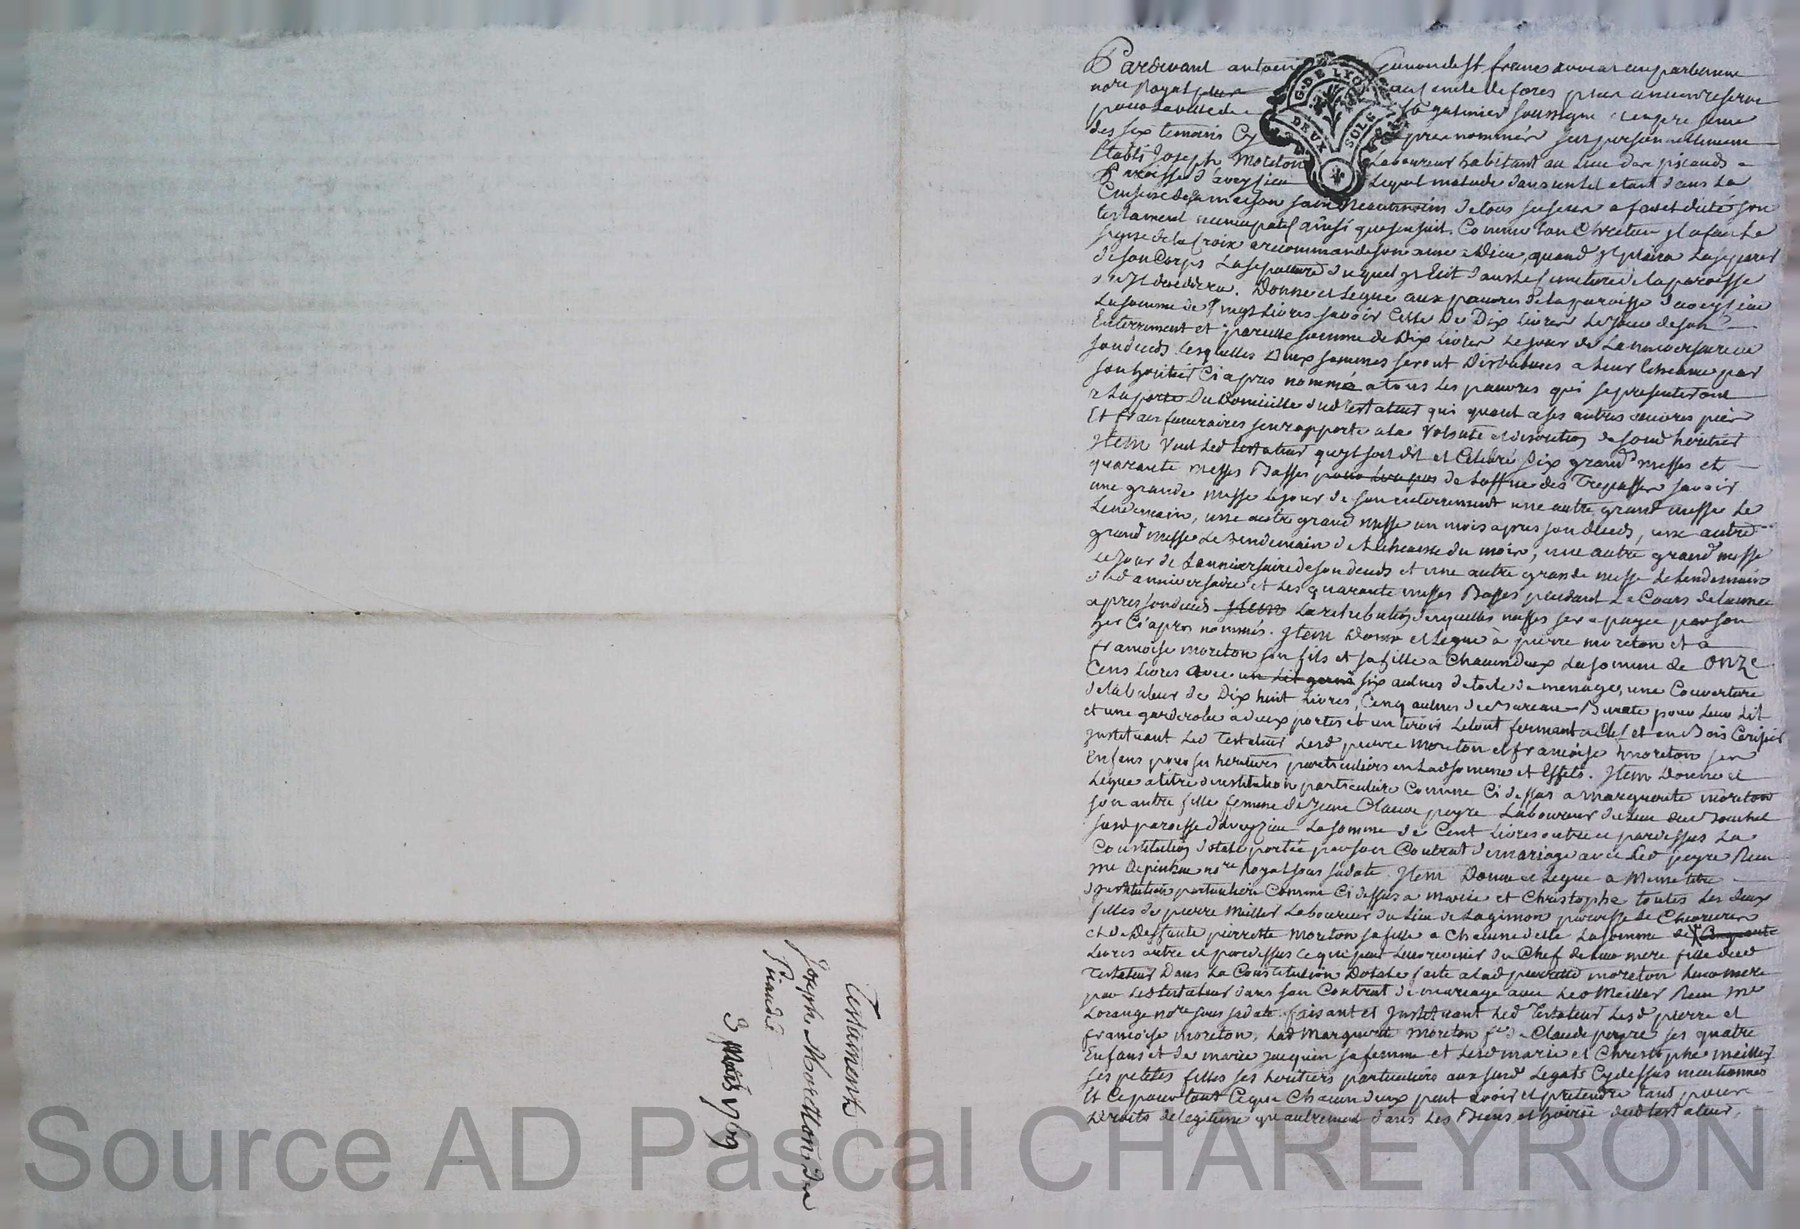 Pardevant antoine
nore Royal
pour la ville de St galmier soussigne
des six temoins cy apres nommés fut personnellement
Etabli Joseph Moreton Laboureur habitant au lieu des piauds
Paroisse d'aveyzieu Lequel malade dans un lit etant dans La
Cuisine de sa maison sain Neantmoins de tous ses sens a fait et dicté son
testament nuncupatif ainsi que s'en suit. Comme bon Chretien jl a fait Le
signe de la Croix a recommandé son ame a Dieu, quand jl plaira La séparer
de son Corps La sepulture duquel jl Elit dans Le Cimetiere de la paroisse
ou jl decedera. Donne et Legue aux pauvres de la paroisse d'aveyzieu
La somme de Vingt Livres savoir Celle De Dix Livres Le jour de son
Enterrement et pareille somme de Dix Livres Le jour de L'anniversaire de
son deceds lesquelles Deux sommes seront Distribuées
son heritier Ci apres nommé a tous les pauvres qui se presenteront
a La porte Du Domicille dud Testateur qui quant a ses autres œuvres pies
Et frais funeraires s'en rapporte a la Volonté et discretion de sond heritier
Item Veut Led testateur qu'jl soit dit et Celebré Six grandes messes et
quarante messes Basses de Loffice des Trepassés savoir
une grande messe le jour de son enterrement une autre grand messe Le
Lendemain, une autre grand messe un mois apres son deceds, une autre
grand messe Le Lendemain du mois, une autre grand messe
Le jour de L'anniversaire de son deceds et une autre grande messe Le Lendemain
dud anniversaire et Les quarante messes Basses pendant Le Cours de L'année
apres son deceds Item La retribution desquelles messes sera payée par son
her Ci apres nommé. Item Donne et Legue à pierre moreton et a
françoise moreton son fils et sa fille a Chacun Deux La somme de Onze
Cens Livres avec un Lit garni six aulnes de toile de menage, une Couverture
de la Valeur de Dix huit Livres, Cinq aulnes de Burate pour Leur Lit
et une garderobe a deux portes et un tiroir Le tout fermant a Clef et en Bois Cerisier
Instituant Led Testateur Lesd pierre Moreton et françoise moreton ses
Enfans pour ses heritiers particuliers en Lad somme et Effets. Item Donne et
Legue a titre d'institution particuliere Comme Ci dessus a marguerite moreton
son autre fille femme de Jean Claude peyre Laboureur du Lieu
susd paroisse d'Aveyzieu La somme de Cent Livres outre et pardessus La
Constitution dotale portée par son Contrat de mariage avec Led peyre Reçu
me Depinhac nore Royal sous sa date. Item Donne et Legue a Meme titre
d'institution particuliere Comme Ci dessus a marie et Christophe toutes Les deux
filles de pierre Meiller Laboureur du Lieu de Lagimon paroisse de Chevrieres
et de Deffunte pierrette Moreton sa fille a Chacune delle La somme de Cinquante
Livres outre et pardessus ce qui peut Leur revenir du Chef de Leur mere fille dud
Testateur Dans La Constitution Dotale faite a Lad pierrette moreton Leur mere
par Led testateur dans son Contrat de mariage avec Led Meiller Reçu Me
Lorange nore sous sa date. faisant et Instituant Led Testateur Lesd pierre et
françoise moreton, Lad Marguerite Moreton fe de Claude peyre ses quatre
Enfans et de marie Jacquin sa femme et Lesd marie et Christophe meiller
ses petites filles ses heritiers particuliers aux susd Legats Cy dessus mentionnés
Et Ce pour tout Ce que Chacun d'eux peut avoir et pretendre tant pour
Droits de Legitime qu'autrement dans Les Biens et hoirie dud testateur.
G. DE LYON
DEUX SOLS
Testament
Joseph Moretton des
Piauds
3 Mars 1769
Source AD Pascal CHAREYRON